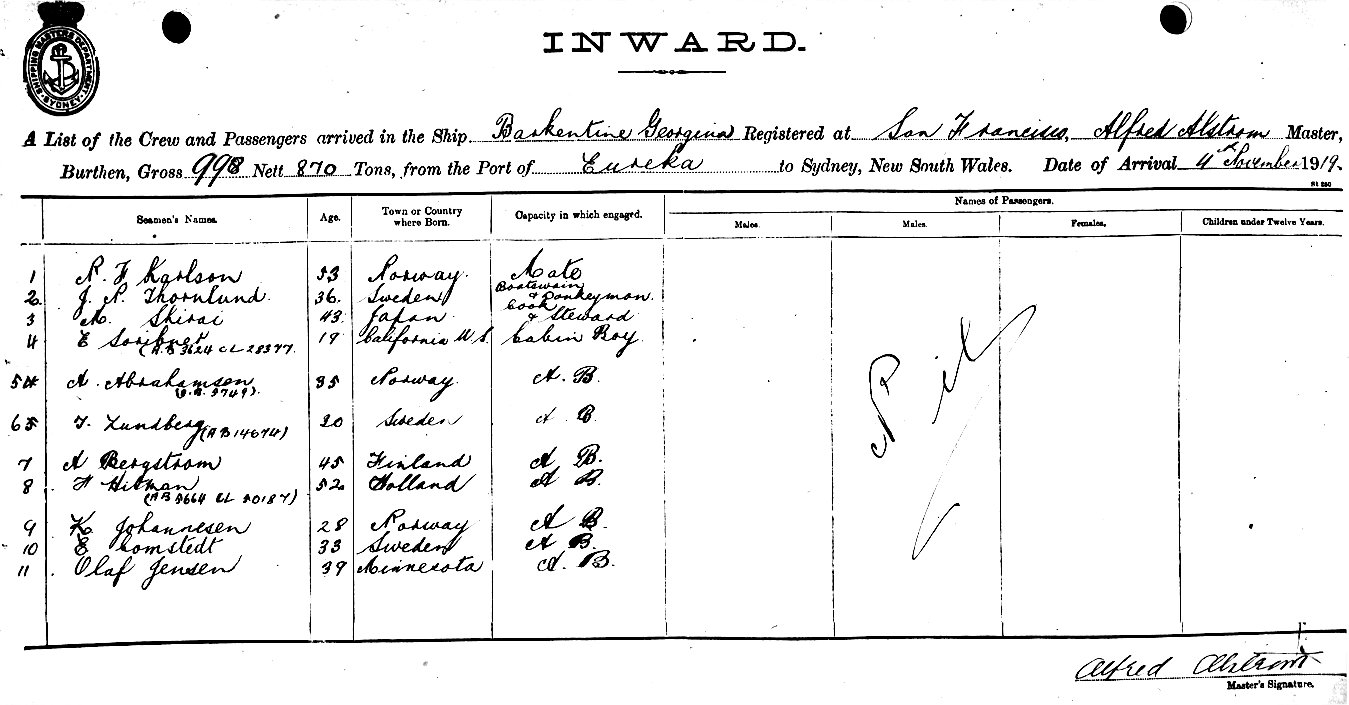 SHIPPING MASTERS DEPARTMENT SYDNEY
INWARD.
A List of the Crew and Passengers arrived in the Ship Barkentine Georgina Registered at San Francisco, Alfred Alstrom Master,
Burthen, Gross 998 Nett 870 Tons, from the Port of Eureka to Sydney, New South Wales. Date of Arrival 4th November 1919.
Names of Passengers.
Seamen's Names. Age. Town or Country where Born. Capacity in which engaged. Males. Males. Females. Children under Twelve Years.
1 N. F Karlson 53 Norway. Mate
2 J. N. Thornlund 36. Sweden Boatswain & Donkeyman.
3 M. Shirai 43 Japan Cook & Steward
4 E 19 California U.S. Cabin Boy.
(A.B 3624 CL 28377
5 A. Abrahamsen 35 Norway. A. B.
6 Lundberg (AB 14674) 20 Sweden A B.
7 A Bergstrom 45 Finland A B.
8 F Hitman 52 Holland A B.
9 K. Johannesen 28 Norway A B.
10 E Comstedt 33 Sweden A B.
11 Olaf Jensen 39 Minnesota A. B.
Nil
Alfred Alstrom
Master's Signature.